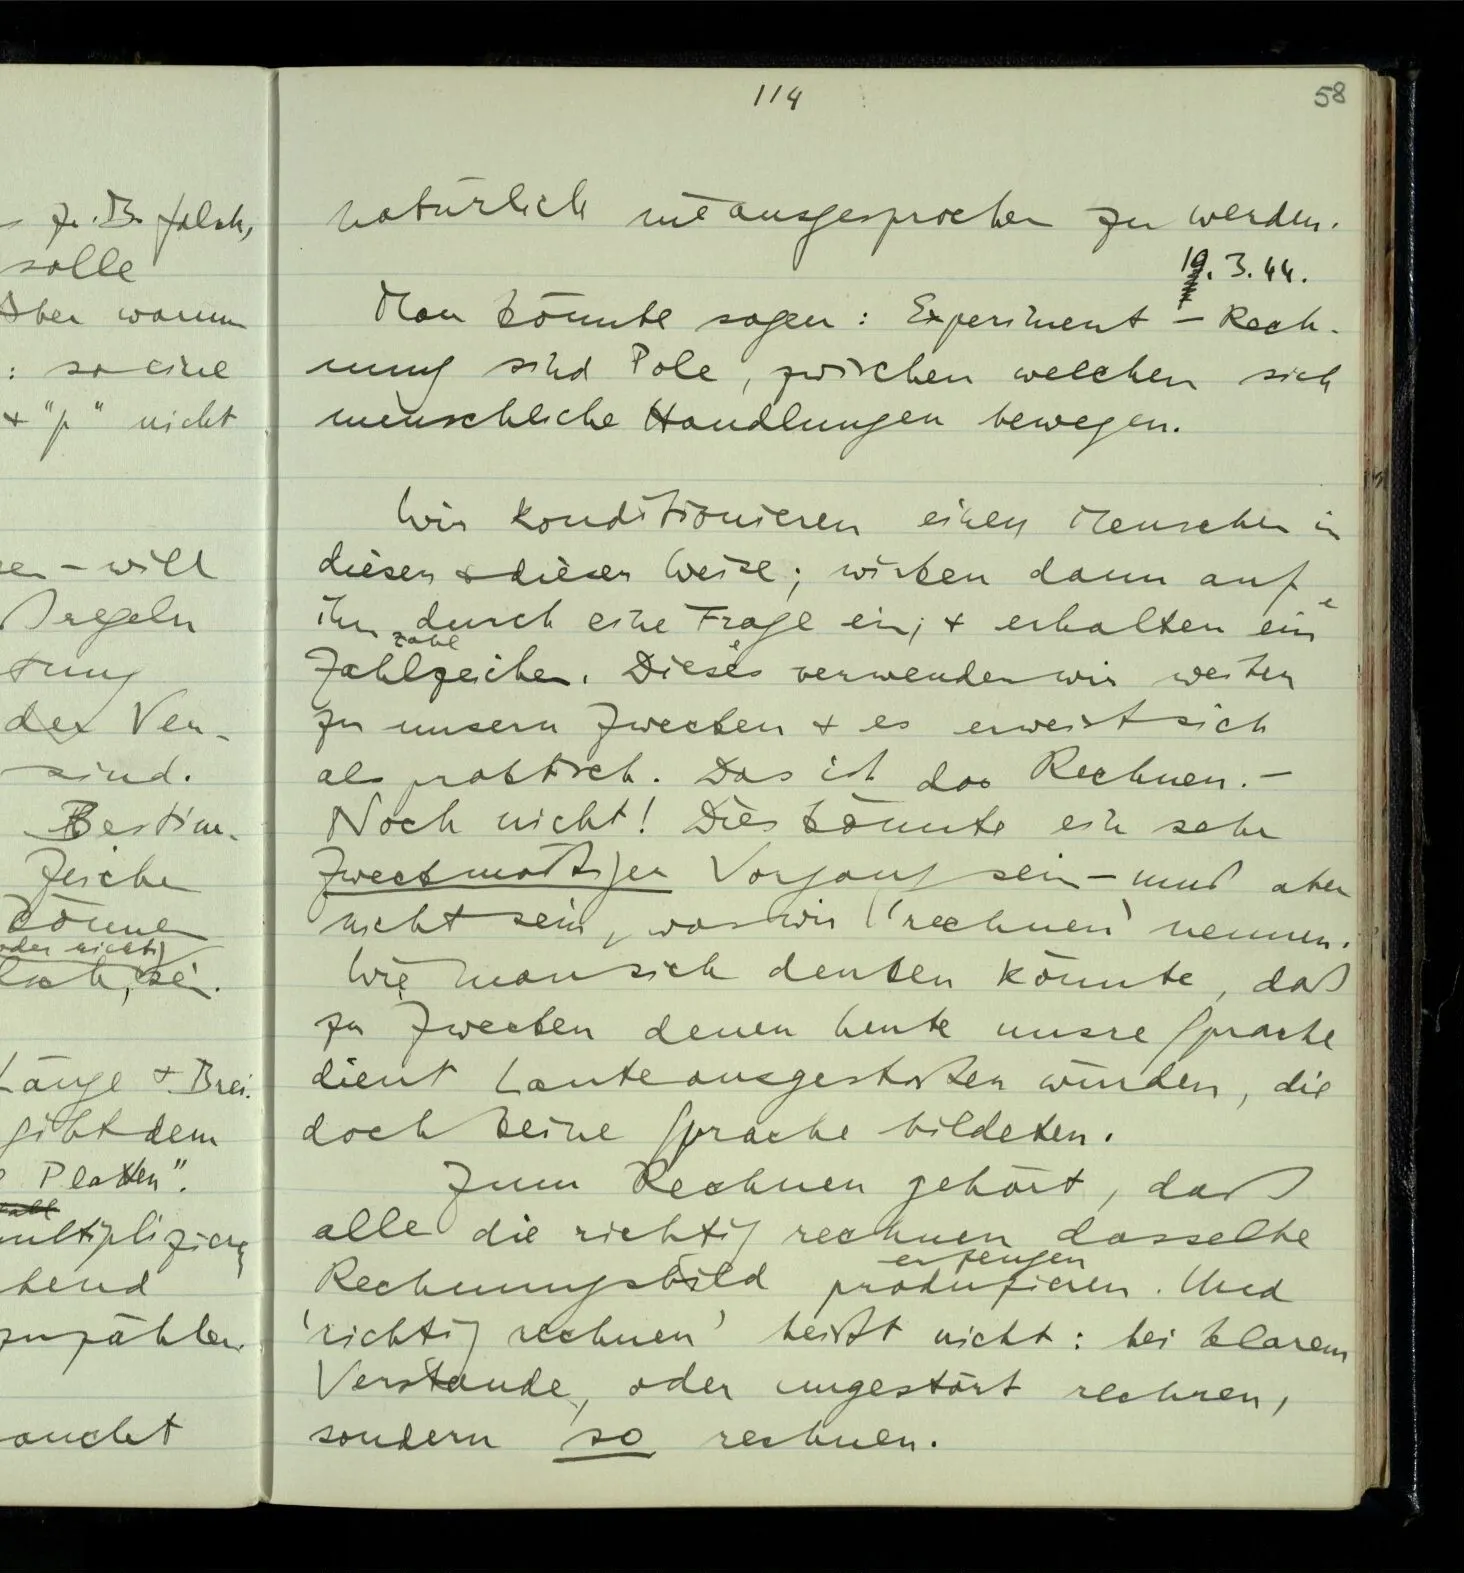 114
58
z.B. falsch,
solle
Aber warum
: so eine
+ "p" nicht
– will
Regeln
der Ver-
sind.
Bestim-
Zeichen
könne
oder richtig
sei.
Länge + Brei-
gibt dem
Platten".
multiplizier
zuzählen
natürlich nie ausgesprochen zu werden.
19.3.44.
Man könnte sagen: Experiment – Rech-
nung sind Pole, zwischen welchen sich
menschliche Handlungen bewegen.
Wir konditionieren einen Menschen in
dieser & dieser Weise; wirken dann auf
ihn durch eine Frage ein; + erhalten ein
e
zahl
Zahlzeichen. Dieses verwenden wir weiter
e
zu unsern Zwecken + es erweist sich
als praktisch. Das ist das Rechnen. –
Noch nicht! Dies könnte ein sehr
zweckmäßiger Vorgang sein – muß aber
nicht sein, was wir 'rechnen' nennen.
Wie man sich denken könnte, daß
zu Zwecken denen heute unsre Sprache
dient Laute ausgestoßen würden, die
doch keine Sprache bildeten.
Zum Rechnen gehört, daß
alle die richtig rechnen dasselbe
erzeugen
Rechnungsbild produzieren. Und
'richtig rechnen' heißt nicht: bei klarem
Verstande, oder ungestört rechnen,
sondern so rechnen.